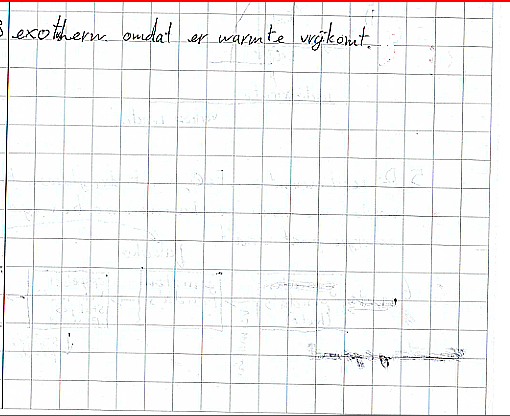 exotherm omdat er warmte vrijkomt.